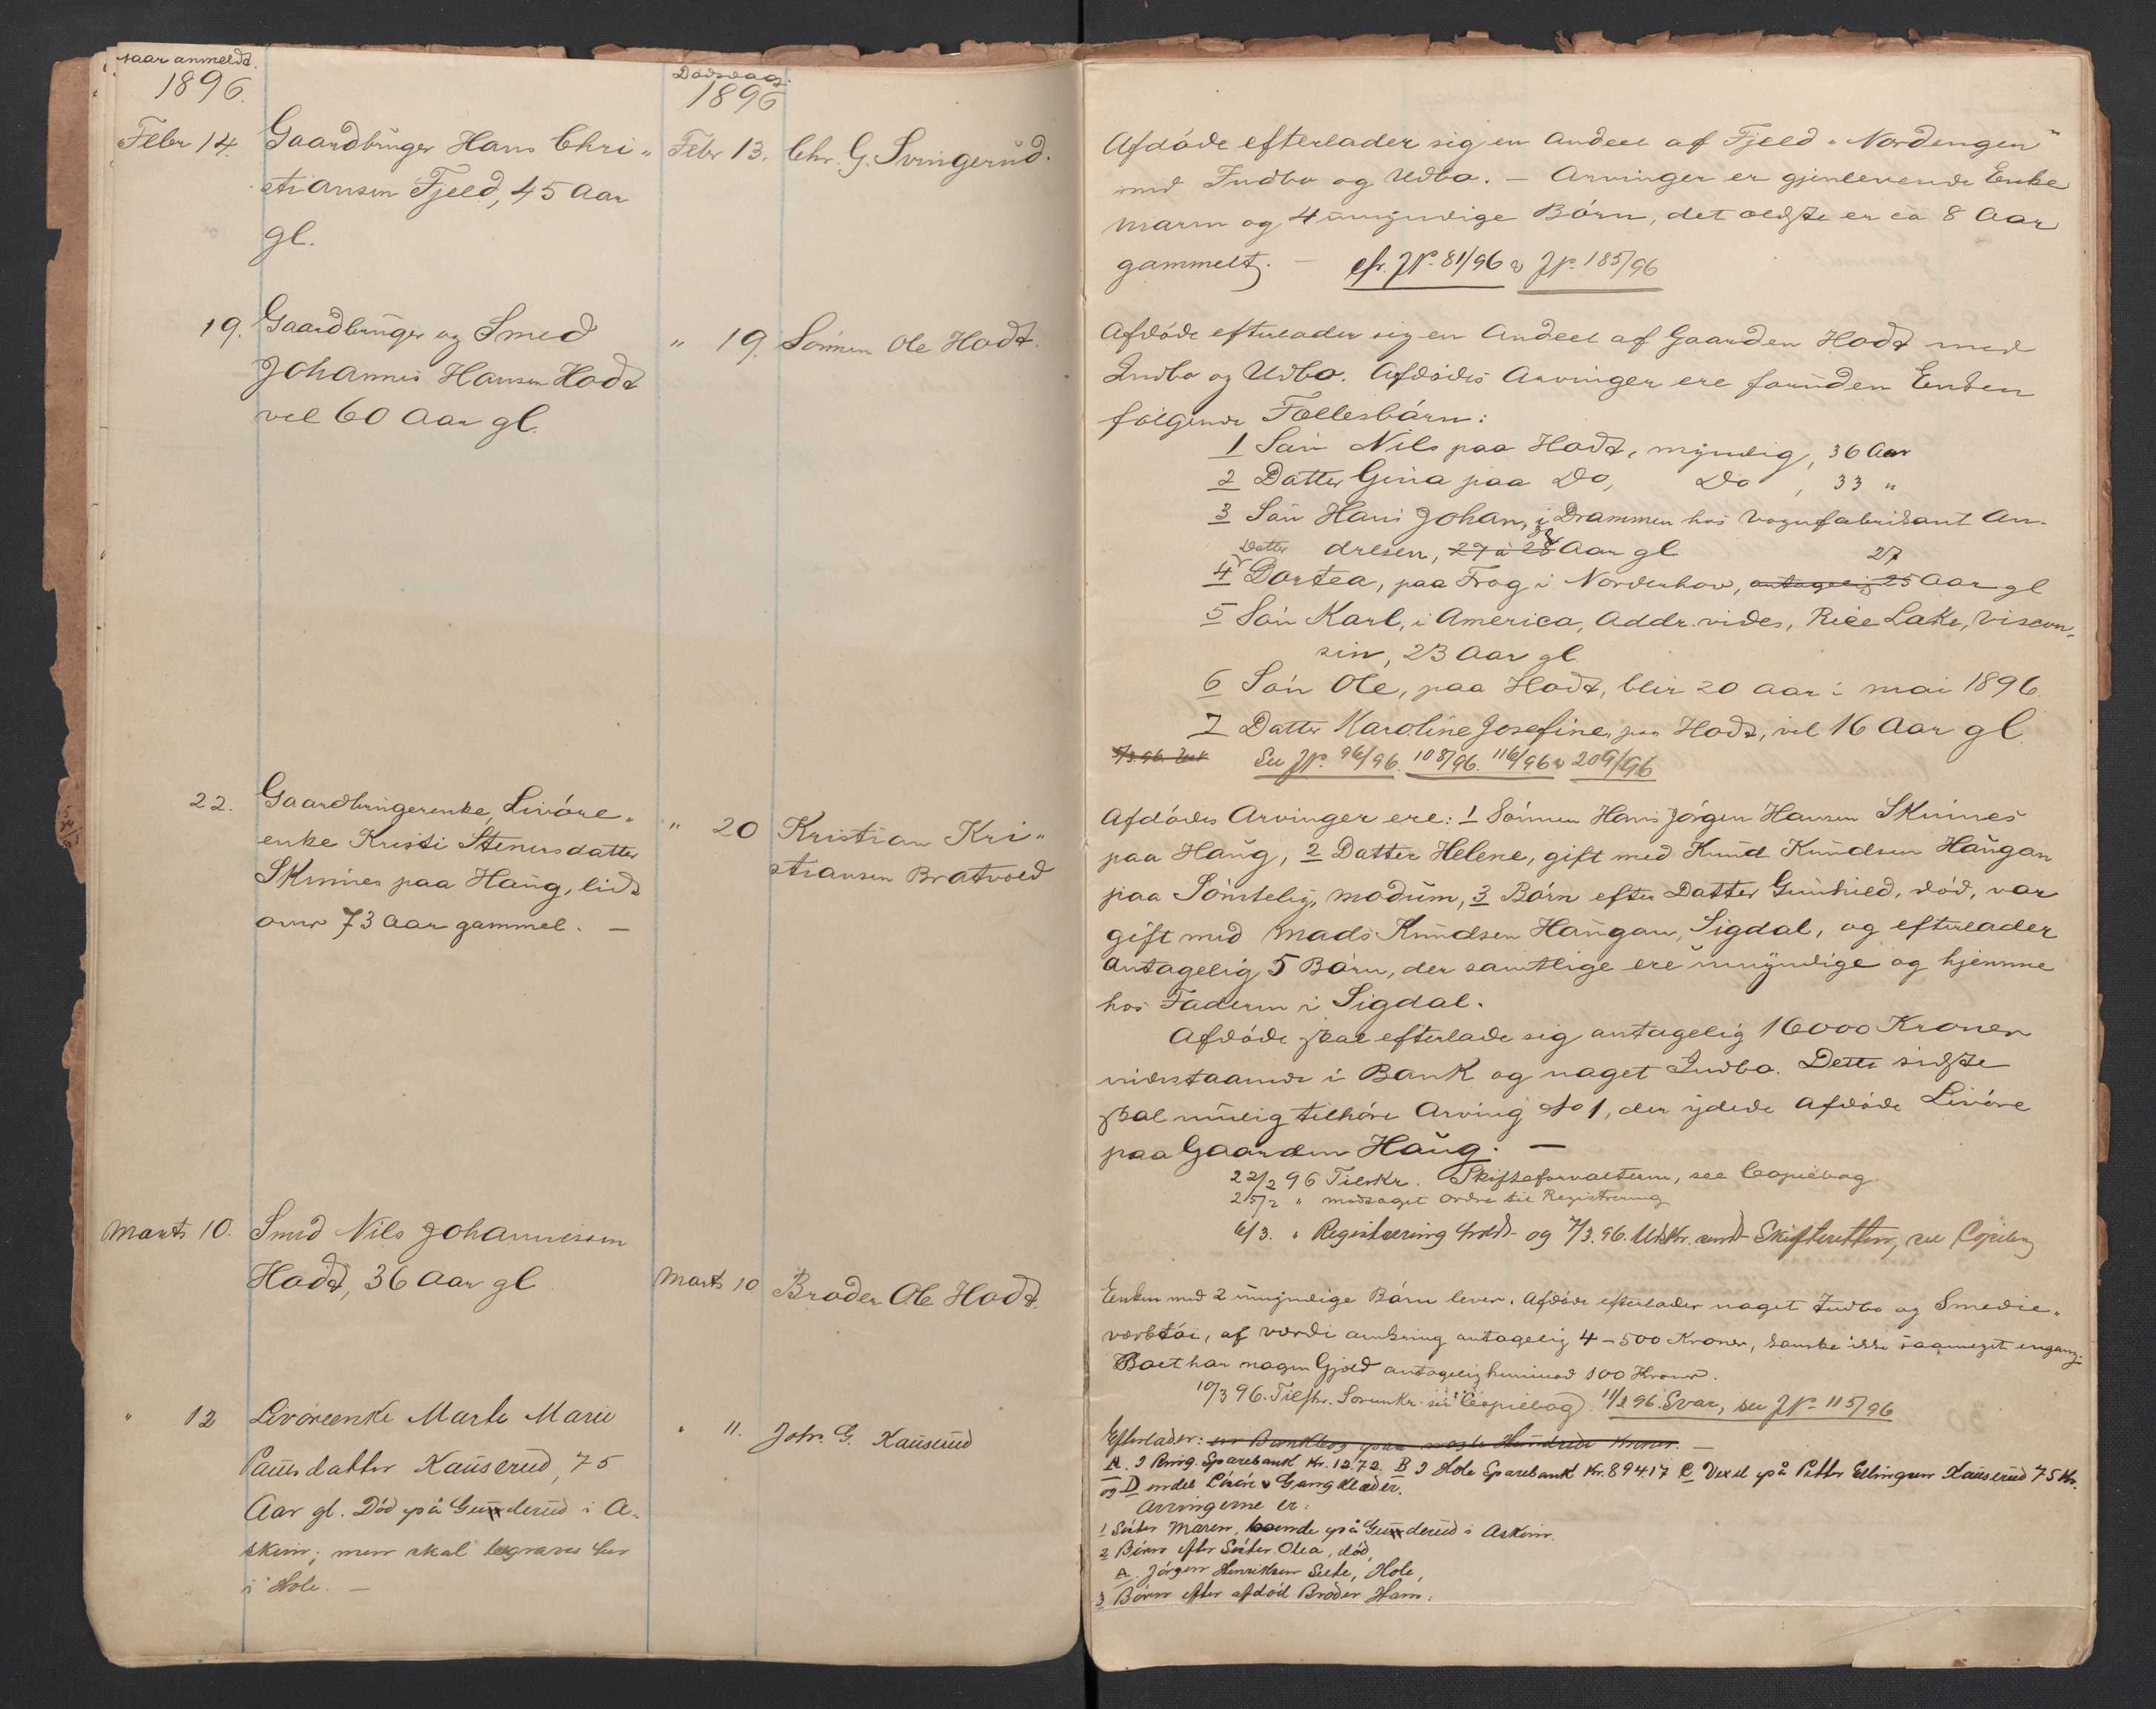 naar anmeldt.
1896.
Dødsdag.
1896
Febr 14. Gaardbruger Hans Chri-
stiansen Fjeld, 45 Aar
gl.
Febr 13. Chr. G. Svingerud.
Afdøde efterlader sig en Andeel af Fjeld "Nordengen"
med Indbo og Udbo. – Arvinger er gjenlevende Enke
Maren og 4 umyndige Børn, det ældste er ca 8 Aar
gammelt. – cfr. JN. 81/96 & JN. 185/96
19. Gaardbruger og Smed
Johannes Hansen Hadt
vel 60 Aar gl.
" 19. Sønnen Ole Hadt.
Afdøde efterlader sig en Andeel af Gaarden Hadt med
Indbo og Udbo. Afdødes Arvinger ere foruden Enken
følgende Fællesbørn:
1 Søn Nils paa Hadt, myndig, 36 Aar
2 Datter Gina paa Do, Do, 33 "
3 Søn Hans Johan, i Drammen hos Vognfabrikant An-
dresen, 27 a 28 Aar gl
4 Datter Dortea, paa Frog i Norderhov, antagelig 25 27 Aar gl
5 Søn Karl, i America, Addr. vides, Rice Lake, Viscon-
sin, 23 Aar gl.
6 Søn Ole, paa Hadt, blir 20 Aar i Mai 1896.
7 Datter Karoline Josefine, paa Hadt, vel 16 Aar gl.
See JN. 96/96. 108/96. 116/96 & 209/96
22. Gaardbrugerenke, Livøre-
enke Kristi Stenersdatter
Skinnes paa Haug, lidt
over 73 Aar gammel. –
" 20 Kristian Kri-
stiansen Bratvold
Afdødes Arvinger ere: 1 Sønnen Hans Jørgen Hansen Skinnes
paa Haug, 2 Datter Helene, gift med Knud Knudsen Haugan
paa Sønsteby, Modum, 3 Børn efter Datter Gunhild, død, var
gift med Mads Knudsen Haugan, Sigdal, og efterlader
antagelig 5 Børn, der samtlige ere umyndige og hjemme
hos Faderen i Sigdal.
Afdøde skal efterlade sig antagelig 16000 Kroner
indestaaende i Bank og noget Indbo. Dette sidste
skal muelig tilhøre Arving No 1, der ydede Afdøde Livøre
paa Gaarden Haug. –
22/2 96 Tilskr. Skifteforvalteren, see Copiebog.
25/2 " modtaget Ordre til Registrering
6/3. " Registrering holdt og 7/3.96. Udskr. sendt Skifteretten, see Copiebog
Marts 10. Smed Nils Johannesen
Hadt, 36 Aar gl
Marts 10 Broder Ole Hadt.
Enken med 2 umyndige Børn lever. Afdøde efterlader noget Indbo og Smedie-
værktøi, af værdi omkring antagelig 4–500 Kroner, kanske ikke saameget engang.
Boet har nogen Gjæld antagelig henimod 100 Kroner.
10/3 96. Tilskr. Sorenskr. see Copiebog. 11/3 96. Svar, see JN. 115/96
" 12 Livøreenke Marte Marie
Paulsdatter Kauserud, 75
Aar gl. Død på Gunderud i A-
skim; men skal begraves her
i Hole. –
" 11. Johs. G. Kauserud
Efterlader: en Bankbog paa nogle Hundrede Kroner. –
A. I Ring. Sparebank Kr. 1272. B I Hole Sparebank Kr. 894.17 C Vexel på Petter Ellingsen Kauserud 75 Kr.
og D endel Linn & Gangklæder.
Arvingerne er:
1 Søster Maren, boende på Gunderud i Askim.
2 Børn efter Søster Olea, død,
A. Jørgen Henriksen Sæte, Hole,
3 Børn efter afdød Broder Hans: